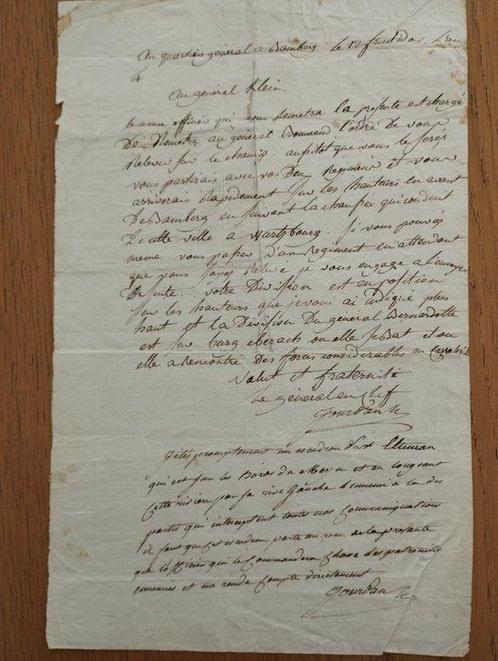 Au quartier général a Bamberg le 12 fructidor L'an
4
Au general Klein.
le meme officier qui vous remetra la présente est chargé
De Remetre au général Bonnaud l'ordre de vous
Relever sur le champ. aussitot que vous le serés
vous partirais avec vos Deux Regiment et vous
arriverais Rapidement sur les hauteurs en avant
De Bamberg en suivant la chaussée qui conduit
De cette ville a Wartzbourg. Si vous pouvois
meme vous passer d'un Regiment en attendant
que vous soyez Relevé je vous engage a l'envoyer
De suite. votre Division est en position
sur les hauteurs que je vous ai indiqué plus
haut et la Division Du general Bernadotte
est sur Burg eberach ou elle se Bat et ou
elle a Rencontré Des forces considerables en Cavalerie
Salut et fraternité
Le général en Chef
Jourdan
promptement un escadron
qui est sur les Bords du Mayn et en longeant
Cette riviere par sa rive Gauche
partis qui interceptent toutes nos Communication
il faut que cet escadron parte au recu de la presente
que le commandera Chasse des patrouilles
ennemies et me rende Compte directement
Jourdan